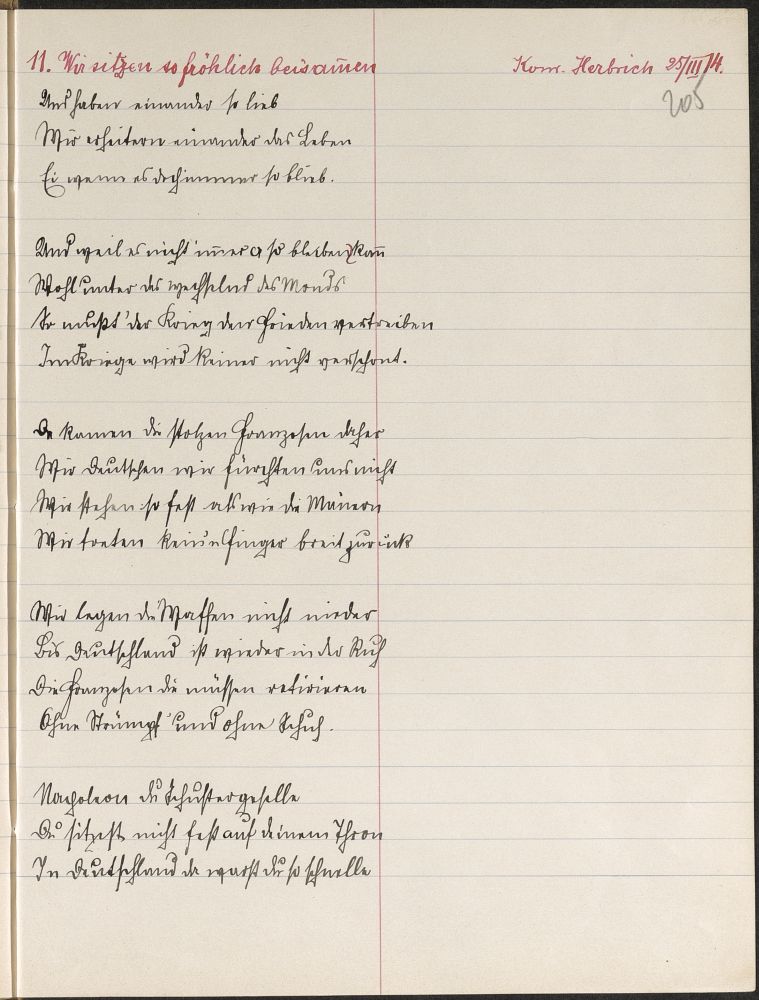 11. Wir sitzen so fröhlich beisam̄en
Konr. Herbrich 25/III 14.
205
Und haben einander so lieb
Wir erheitern einander das Leben
Ei wenn es doch immer so blieb.
Und weil es nicht im̄er so bleiben kan̄
Wohl unter des wechselnd des Monds
So mußt' der Krieg den Frieden vertreiben
Im Kriege wird keiner nicht verschont.
Da kamen die stolzen Franzosen daher
Wir Deutschen wir fürchten uns nicht
Wir stehen so fest als wie die Mauern
Wir treten kein'n Finger breit zurück
Wir legen die Waffen nicht nieder
Bis Deutschland ist wieder in der Ruh
Die Franzosen die müssen retirieren
Ohne Strümpf und ohne Schuh.
Napoleon du Schustergeselle
Du sitzest nicht fest auf deinem Thron
In Deutschland da warst du so schnelle